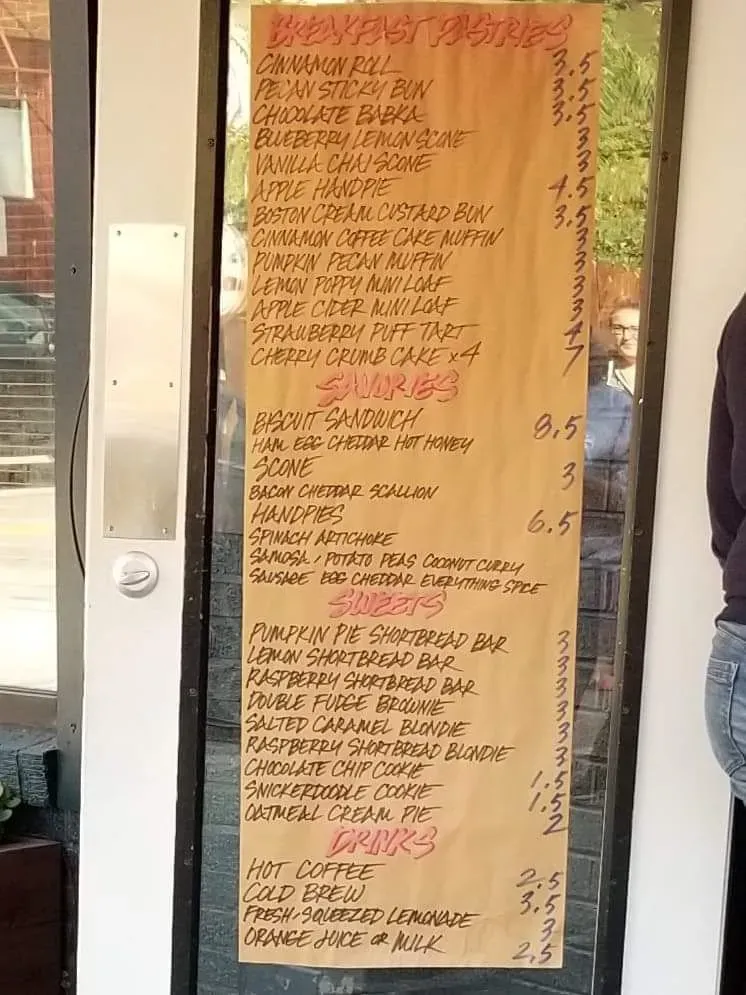 BREAKFAST PASTRIES
CINNAMON ROLL 3.5
PECAN STICKY BUN 3.5
CHOCOLATE BABKA 3.5
BLUEBERRY LEMON SCONE 3
VANILLA CHAI SCONE 3
APPLE HANDPIE 4.5
BOSTON CREAM CUSTARD BUN 3.5
CINNAMON COFFEE CAKE MUFFIN 3
PUMPKIN PECAN MUFFIN 3
LEMON POPPY MINI LOAF 3
APPLE CIDER MINI LOAF 3
STRAWBERRY PUFF TART 4
CHERRY CRUMB CAKE x4 7
SAVORIES
BISCUIT SANDWICH 8.5
HAM EGG CHEDDAR HOT HONEY
SCONE 3
BACON CHEDDAR SCALLION
HANDPIES 6.5
SPINACH ARTICHOKE
SAMOSA / POTATO PEAS COCONUT CURRY
SAUSAGE EGG CHEDDAR EVERYTHING SPICE
SWEETS
PUMPKIN PIE SHORTBREAD BAR 3
LEMON SHORTBREAD BAR 3
RASPBERRY SHORTBREAD BAR 3
DOUBLE FUDGE BROWNIE 3
SALTED CARAMEL BLONDIE 3
RASPBERRY SHORTBREAD BLONDIE 3
CHOCOLATE CHIP COOKIE 1.5
SNICKERDOODLE COOKIE 1.5
OATMEAL CREAM PIE 2
DRINKS
HOT COFFEE 2.5
COLD BREW 3.5
FRESH-SQUEEZED LEMONADE 3
ORANGE JUICE OR MILK 2.5